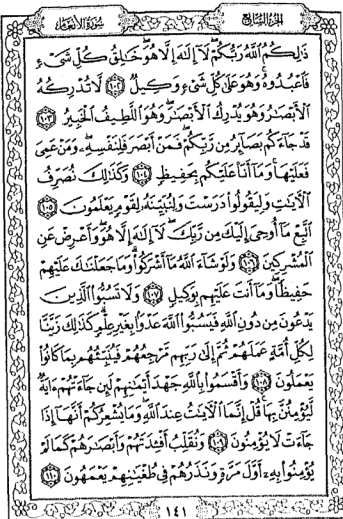 الجزء السابع
سورة الأنعام
ذَٰلِكُمُ ٱللَّهُ رَبُّكُمْ لَآ إِلَٰهَ إِلَّا هُوَ خَٰلِقُ كُلِّ شَىْءٍ
فَٱعْبُدُوهُ وَهُوَ عَلَىٰ كُلِّ شَىْءٍ وَكِيلٌ ١٠٢ لَّا تُدْرِكُهُ
ٱلْأَبْصَٰرُ وَهُوَ يُدْرِكُ ٱلْأَبْصَٰرَ وَهُوَ ٱللَّطِيفُ ٱلْخَبِيرُ ١٠٣
قَدْ جَآءَكُم بَصَآئِرُ مِن رَّبِّكُمْ فَمَنْ أَبْصَرَ فَلِنَفْسِهِۦ وَمَنْ عَمِىَ
فَعَلَيْهَا وَمَآ أَنَا۠ عَلَيْكُم بِحَفِيظٍ ١٠٤ وَكَذَٰلِكَ نُصَرِّفُ
ٱلْءَايَٰتِ وَلِيَقُولُوا۟ دَرَسْتَ وَلِنُبَيِّنَهُۥ لِقَوْمٍ يَعْلَمُونَ ١٠٥
ٱتَّبِعْ مَآ أُوحِىَ إِلَيْكَ مِن رَّبِّكَ لَآ إِلَٰهَ إِلَّا هُوَ وَأَعْرِضْ عَنِ
ٱلْمُشْرِكِينَ ١٠٦ وَلَوْ شَآءَ ٱللَّهُ مَآ أَشْرَكُوا۟ وَمَا جَعَلْنَٰكَ عَلَيْهِمْ
حَفِيظًا وَمَآ أَنتَ عَلَيْهِم بِوَكِيلٍ ١٠٧ وَلَا تَسُبُّوا۟ ٱلَّذِينَ
يَدْعُونَ مِن دُونِ ٱللَّهِ فَيَسُبُّوا۟ ٱللَّهَ عَدْوًۢا بِغَيْرِ عِلْمٍ كَذَٰلِكَ زَيَّنَّا
لِكُلِّ أُمَّةٍ عَمَلَهُمْ ثُمَّ إِلَىٰ رَبِّهِم مَّرْجِعُهُمْ فَيُنَبِّئُهُم بِمَا كَانُوا۟
يَعْمَلُونَ ١٠٨ وَأَقْسَمُوا۟ بِٱللَّهِ جَهْدَ أَيْمَٰنِهِمْ لَئِن جَآءَتْهُمْ ءَايَةٌ
لَّيُؤْمِنُنَّ بِهَا قُلْ إِنَّمَا ٱلْءَايَٰتُ عِندَ ٱللَّهِ وَمَا يُشْعِرُكُمْ أَنَّهَآ إِذَا
جَآءَتْ لَا يُؤْمِنُونَ ١٠٩ وَنُقَلِّبُ أَفْـِٔدَتَهُمْ وَأَبْصَٰرَهُمْ كَمَا لَمْ
يُؤْمِنُوا۟ بِهِۦٓ أَوَّلَ مَرَّةٍ وَنَذَرُهُمْ فِى طُغْيَٰنِهِمْ يَعْمَهُونَ ١١٠
١٤١